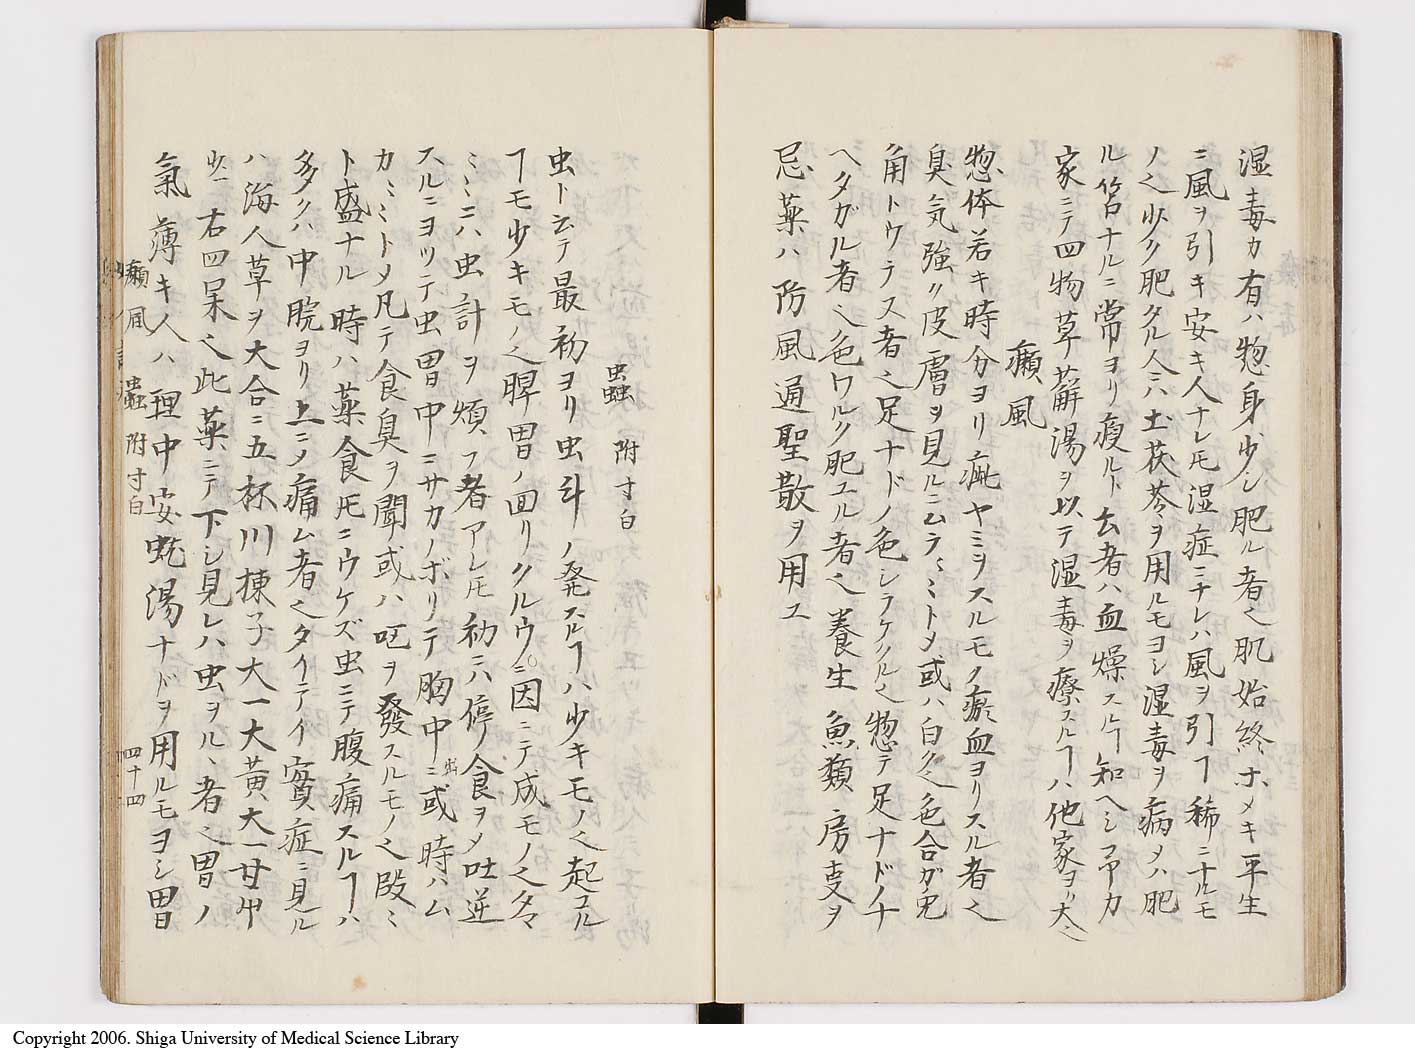 湿毒カ有ハ惣身少シ肥ル者也肌始終ホメキ平生
ニ風ヲ引キ安キ人ナレ𪜈湿症ニナレハ風ヲ引ヿ稀ニナルモ
ノ也少ク肥タル人ニハ土茯苓ヲ用ルモヨシ湿毒ヲ病メハ肥
ル筈ナルニ常ヨリ瘦ルト云者ハ血燥スルヿ知ヘシ予カ
家ニテ四物草薢湯ヲ以テ湿毒ヲ療スルヿハ他家ヨリ大也
癩風
惣体若キ時分ヨリ疵ヤミヲスルモク瘀血ヨリスル者也
臭気強ク皮膚ヲ見ルニムラミミトメ或ハ白ク色合ガ兎
角トウテス者也足ナドノ色シラケクル也惣テ足ナドノナ
ヘタガル者也色ワルク肥ユル者也養生魚類房叓ヲ
忌薬ハ防風通聖散ヲ用ユ
蟲 附寸白
虫ト云テ最初ヨリ虫斗ノ発スルヿハ少キモノ也起コル
ヿモ少キモノ也脾胃ノ回リクルウニ因ニテ成モノ也タマ
ミミニハ虫計ヲ煩フ者アレ𪜈初ニハ停食ヲメ吐逆
スルニヨツテ虫胃中ニサカノボリテ胸中ニ出或時ハム
カミミトメ凡テ食臭ヲ聞或ハ吐ヲ發スルモノ也段ミ
ト盛ナル時ハ薬食𪜈ニウケズ虫ニテ腹痛スルヿハ
多クハ中脘ヨリ上ニメ痛ム者也タイテイ實症ニ見ル
ハ海人草ヲ大合ニ五杯川楝子大一大黄大一甘中
少一右四味也此薬ニテ下シ見レハ虫ヲル、者也胃ノ
氣薄キ人ハ理中安蛇湯ナドヲ用ルモヨシ胃
癩風 蟲 附寸白 四十四
Copyright 2006. Shiga University of Medical Science Library